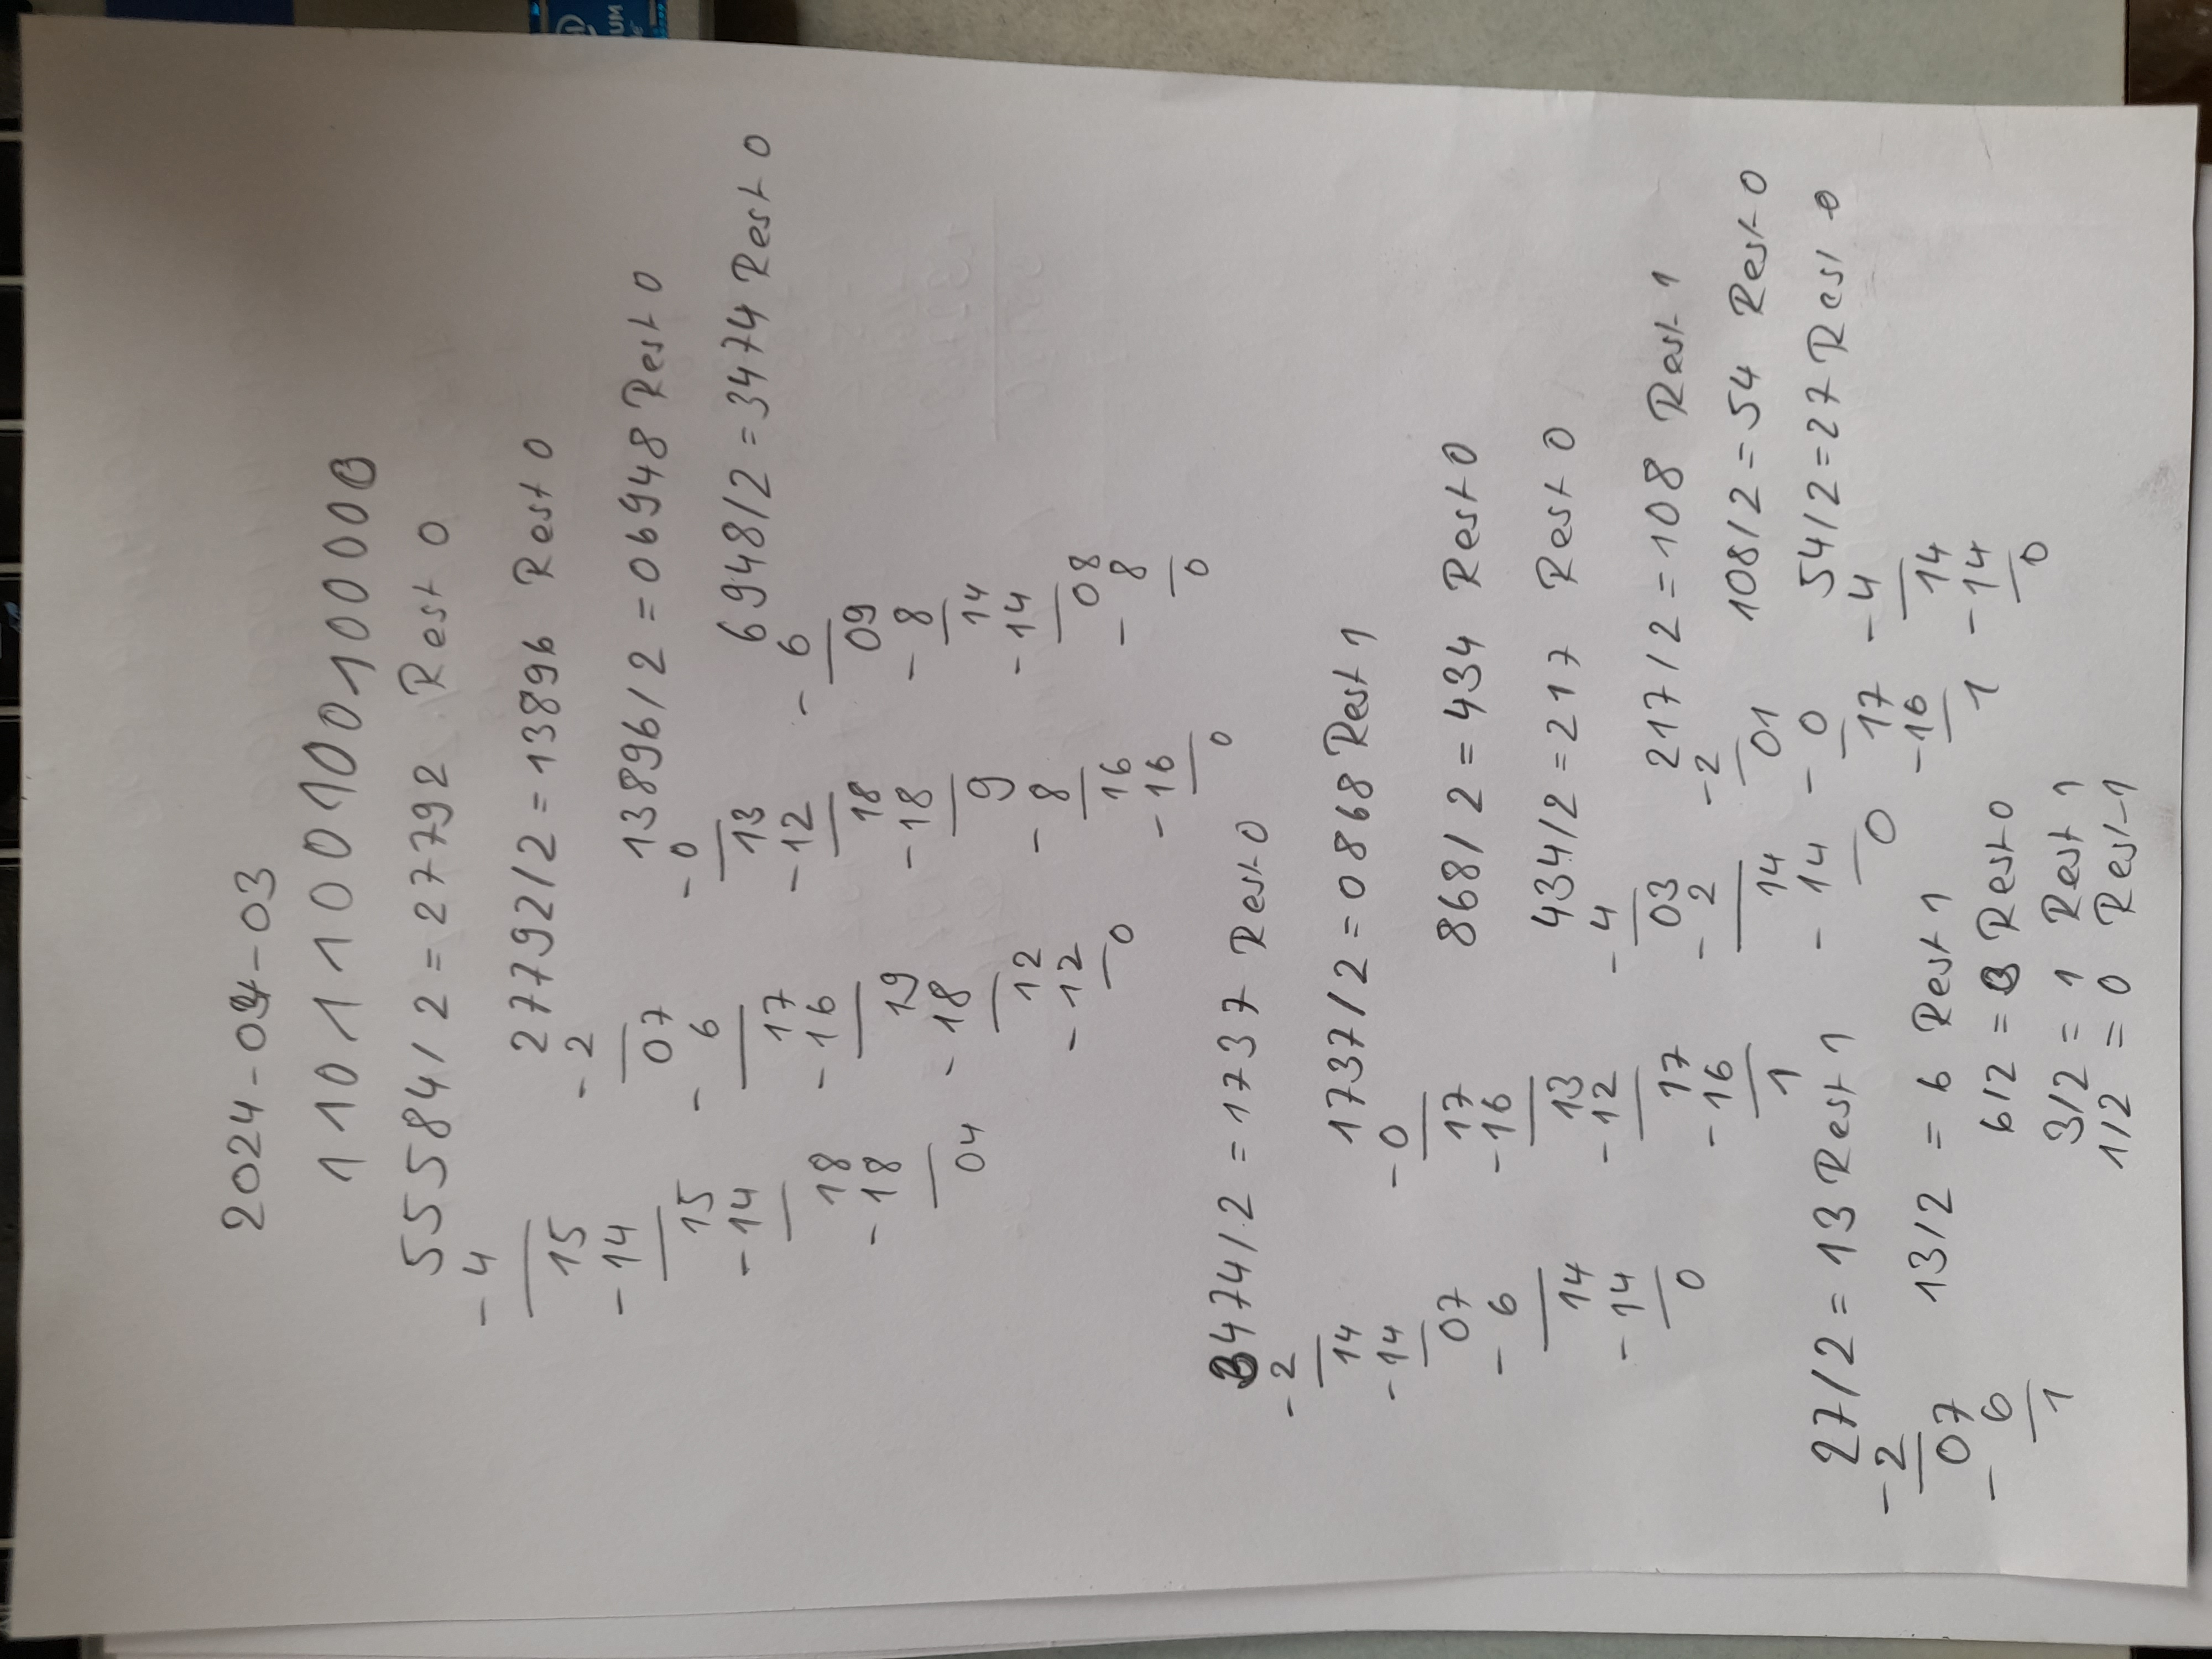 2024-04-03
1101100100100000
55584/2=27792 Rest 0
-4
15
-14
15
-14
18
-18
04
27792/2=13896 Rest 0
-2
07
-6
17
-16
19
-18
12
-12
0
13896/2=06948 Rest 0
-0
13
-12
18
-18
9
-8
16
-16
0
6948/2=3474 Rest 0
-6
09
-8
14
-14
08
-8
0
3474/2=1737 Rest 0
-2
14
-14
07
-6
14
-14
0
1737/2=0868 Rest 1
-0
17
-16
13
-12
17
-16
1
868/2=434 Rest 0
434/2=217 Rest 0
-4
03
-2
14
-14
0
217/2=108 Rest 1
-2
01
-0
17
-16
1
108/2=54 Rest 0
54/2=27 Rest 0
-4
14
-14
0
27/2=13 Rest 1
-2
07
-6
1
13/2=6 Rest 1
6/2=3 Rest 0
3/2=1 Rest 1
1/2=0 Rest 1